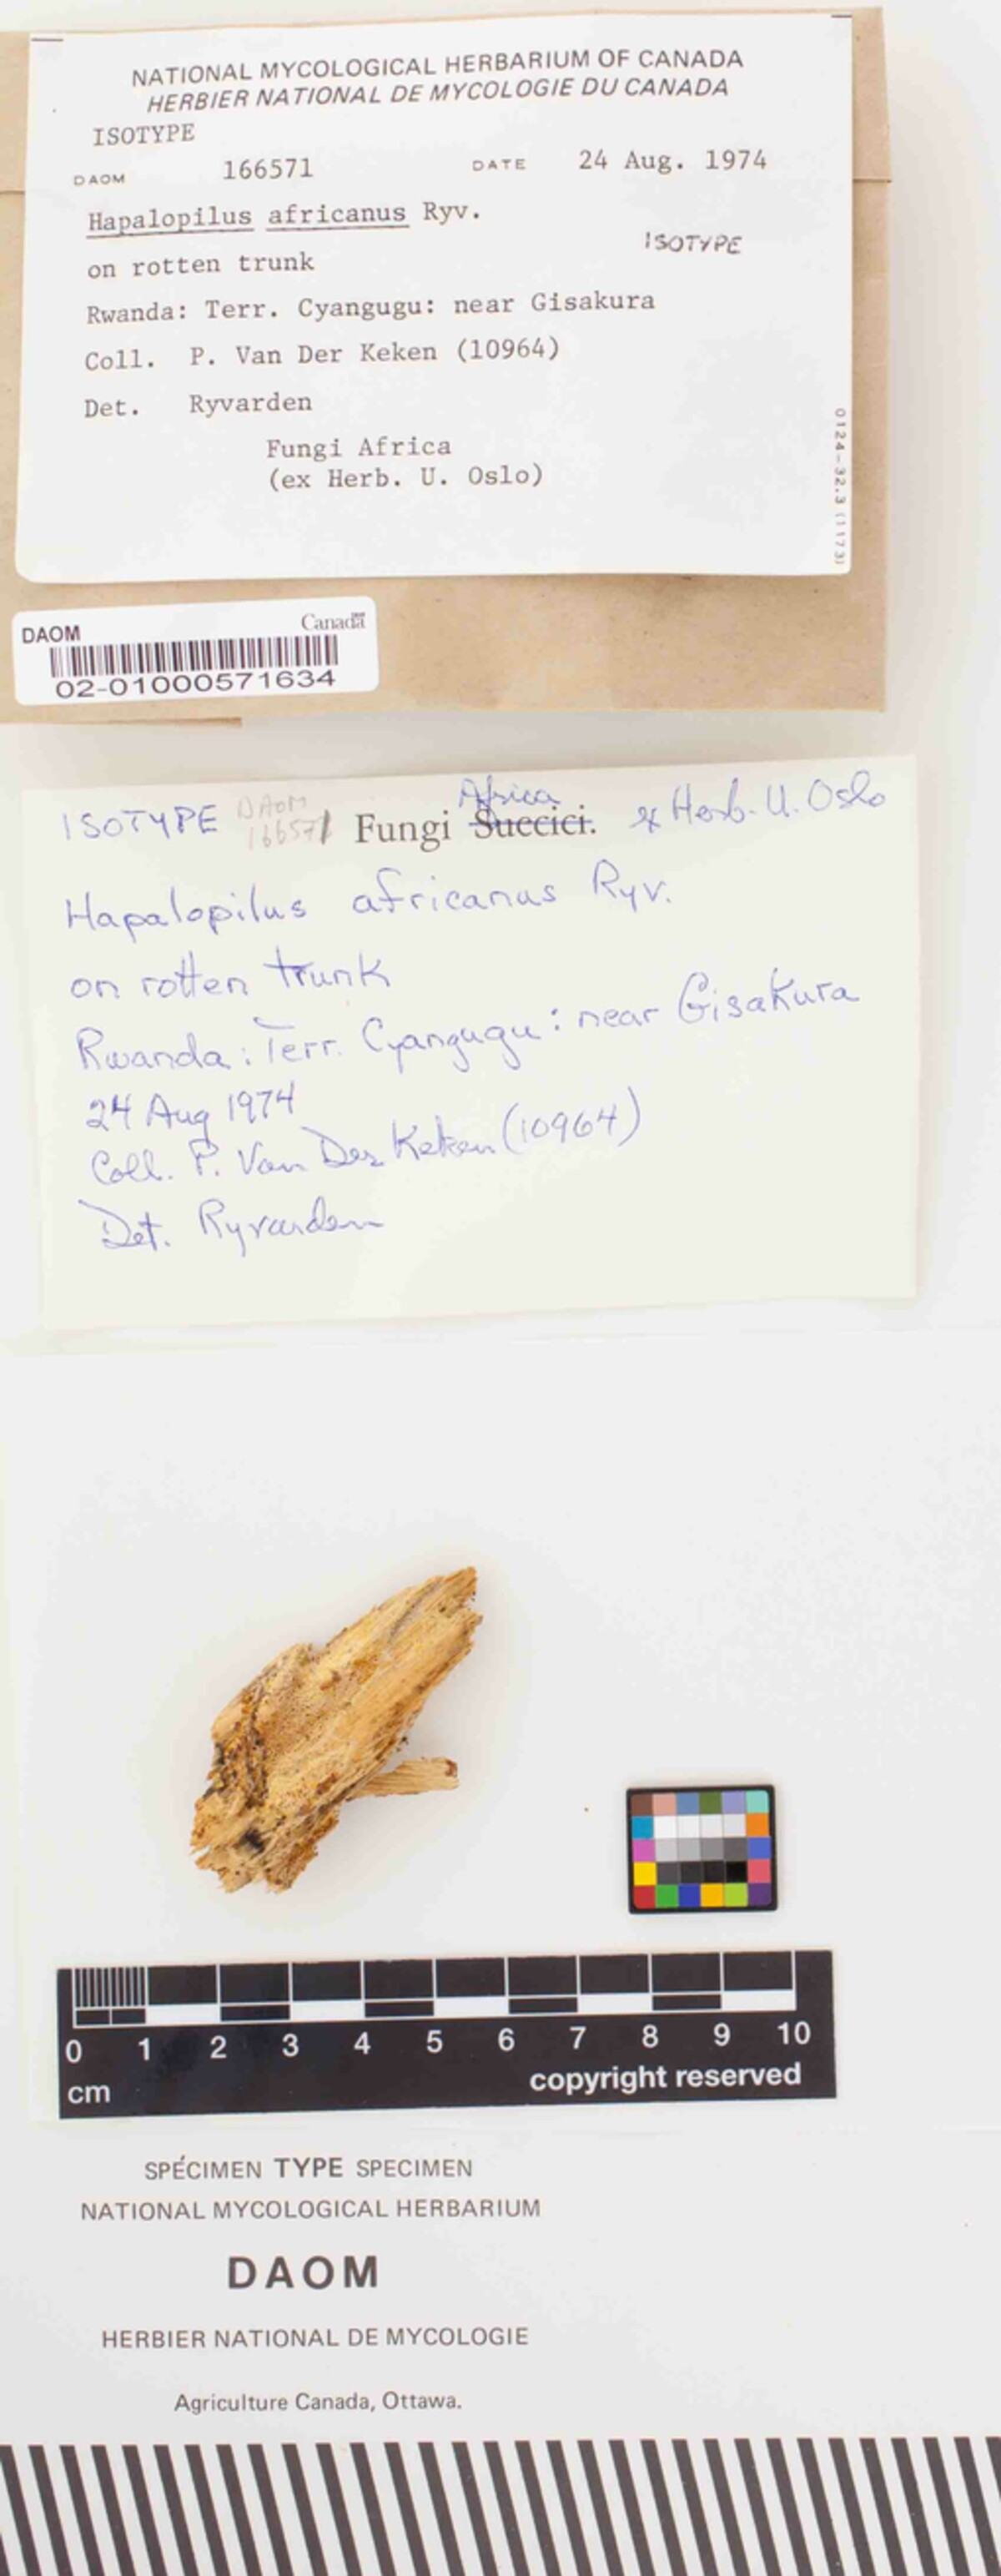 NATIONAL MYCOLOGICAL HERBARIUM OF CANADA
HERBIER NATIONAL DE MYCOLOGIE DU CANADA
ISOTYPE
DAOM 166571 DATE 24 Aug. 1974
Hapalopilus africanus Ryv.
ISOTYPE
on rotten trunk
Rwanda: Terr. Cyangugu: near Gisakura
Coll. P. Van Der Keken (10964)
Det. Ryvarden
Fungi Africa
(ex Herb. U. Oslo)
0124-32.3 (1173)
DAOM Canada
02-01000571634
Africa
ISOTYPE DAOM Fungi Succici. ex Herb. U. Oslo
166571
Hapalopilus africanus Ryv.
on rotten trunk
Rwanda: Terr. Cyangugu: near Gisakura
24 Aug 1974
Coll. P. Van Der Keken (10964)
Det. Ryvarden
0 1 2 3 4 5 6 7 8 9 10
cm copyright reserved
SPÉCIMEN TYPE SPECIMEN
NATIONAL MYCOLOGICAL HERBARIUM
DAOM
HERBIER NATIONAL DE MYCOLOGIE
Agriculture Canada, Ottawa.